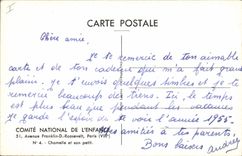 CARTE POSTALE
Chère amie,
Je te remercie de ton aimable
carte et de ton cadeau qui m'a fait grand
plaisir. Je t'envoie quelques timbres et je te
remercie beaucoup des tiens. Ici, le temps
est plus beau que pendant les vacances.
Je garde l'espoir de te voir l'année 1956.
Mes amitiés à tes parents.
Bons baisers
COMITÉ NATIONAL DE L'ENFANCE
51, Avenue Franklin-D.-Roosevelt, Paris (VIIIe)
N° 4. - Chamelle et son petit.